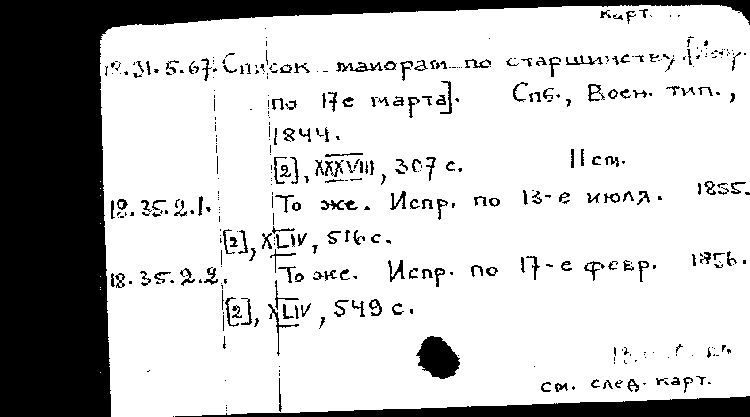 карт.
18.31.5.67. Список маиорам по старшинству. [Испр.
по 17е марта]. Спб., Воен. тип.,
1844.
[2], XXXVIII, 307 с. 11 см.
18.35.2.1. То же. Испр. по 13-е июля. 1855.
[2], XLIV, 516 с.
18.35.2.2. То же. Испр. по 17-е февр. 1856.
[2], XLIV, 549 с.
см. след. карт.